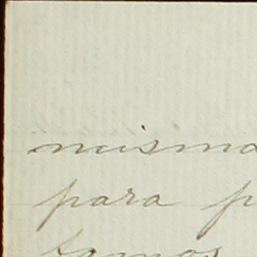 misma
para p